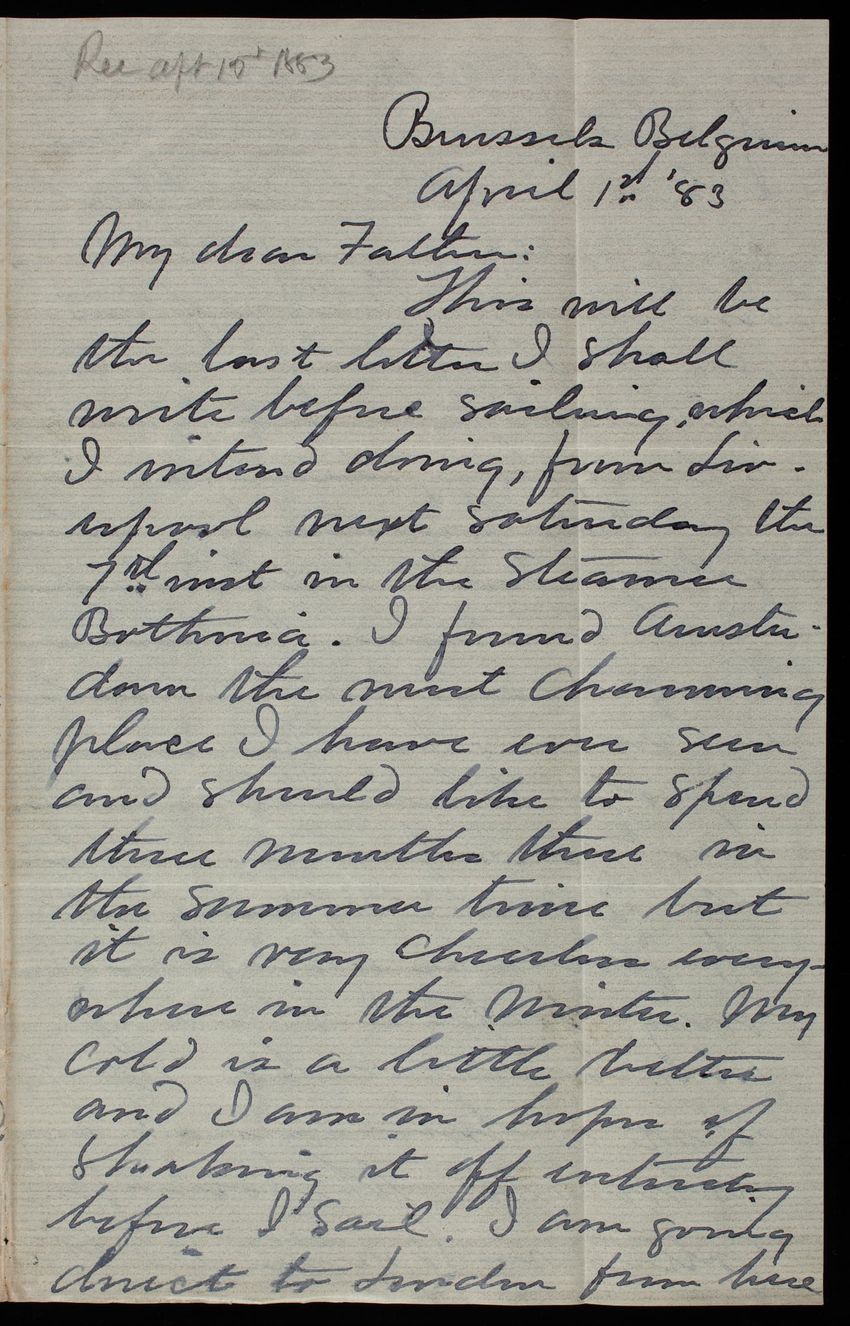 Rec apr 15th 1883
Brussels Belgium
April 1st '83
My dear Father:
This will be
the last letter I shall
write before sailing, which
I intend doing, from Liv-
erpool next Saturday the
7th inst in the Steamer
Bothnia. I found Amster-
dam the most charming
place I have ever seen
and should like to spend
three months there in
the summer time but
it is very cheerless every-
where in the Winter. My
cold is a little better
and I am in hopes of
shaking it off entirely
before I sail. I am going
direct to London from here